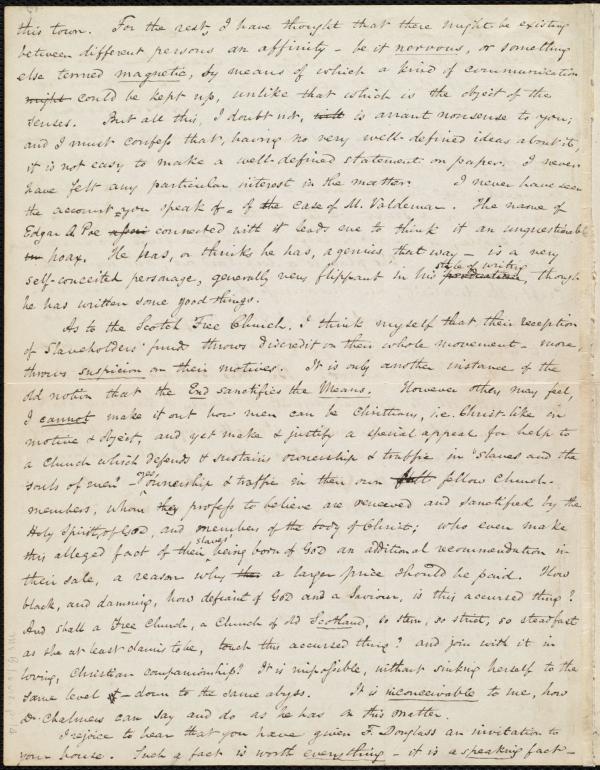 this town. For the rest, I have thought that there might be existing
between different persons an affinity - be it nervous, or something
else termed magnetic, by means of which a kind of communication
might could be kept up, unlike that which is the object of the
senses. But all this, I doubt not, is arrant nonsense to you;
and I must confess that, having no very well-defined ideas about it,
it is not easy to make a well-defined statement on paper. I never
have felt any particular interest in the matter. I never have seen
the account you speak of - of the case of M. Valdemar. The name of
Edgar A. Poe connected with it leads me to think it an unquestionable
hoax. He has, or thinks he has, a genius that way - is a very
self-conceited personage, generally very flippant in his style of writing, though
he has written some good things.
As to the Scotch Free Church. I think myself that their reception
of Slaveholders' funds throws discredit on their whole movement - more,
throws suspicion on their motives. It is only another instance of the
old notion that the End sanctifies the Means. However others may feel,
I cannot make it out how men can be Christians, i.e. Christ-like in
motive & object, and yet make & justify a special appeal for help to
a Church which defends & sustains ownership & traffic in "slaves and the
souls of men" - yes, ownership & traffic in their own fellow Church-
members, whom they profess to believe are renewed and sanctified by the
Holy Spirit of God, and members of the body of Christ; who even make
this alleged fact of their slaves' being born of God an additional recommendation in
their sale, a reason why a larger price should be paid. How
black, and damning, how defiant of God and a Saviour, is this accursed thing?
And shall a Free Church, a Church of old Scotland, so stern, so strict, so steadfast
as she at least claims to be, touch this accursed thing? and join with it in
loving, Christian companionship? It is impossible, without sinking herself to the
same level - down to the same abyss. It is inconceivable to me, how
Dr. Chalmers can say and do as he has in this matter.
I rejoice to hear that you have given F. Douglass an invitation to
your house. Such a fact is worth everything - it is a speaking fact -